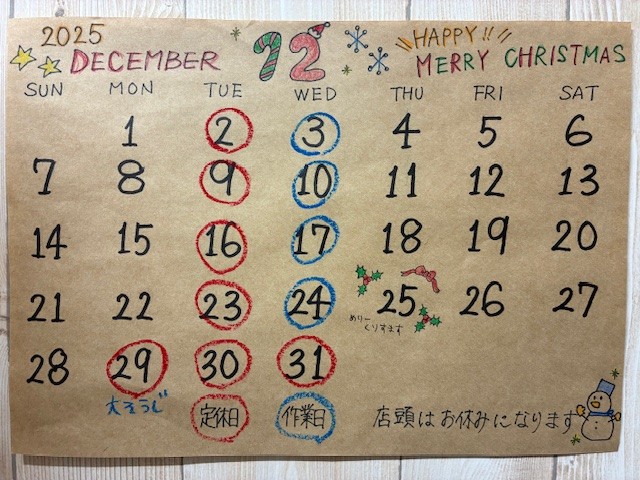 2025
DECEMBER 12 HAPPY!!
MERRY CHRISTMAS
SUN MON TUE WED THU FRI SAT
1 2 3 4 5 6
7 8 9 10 11 12 13
14 15 16 17 18 19 20
21 22 23 24 25 26 27
めりー
くりすます
28 29 30 31
大そうじ
定休日 作業日 店頭はお休みになります